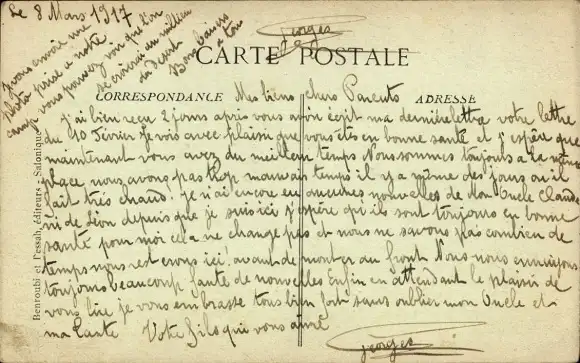 Le 8 Mars 1917
je vous envoie une
photo prise a notre
camp vous pouvez voir que l'on
se croirai en millieu
du desert
Bons baisers
a tous
Georges
CARTE POSTALE
CORRESPONDANCE
ADRESSE
Mes biens chers Parents
j'ai bien reçu 2 jours après vous avoir écrit ma dernière lettre votre lettre
du 10 Février je vois avec plaisir que vous êtes en bonne santé et j'espère que
maintenant vous avez du meilleur temps Nous sommes toujours a la même
place nous avons pas trop mauvais temps il y a même des jours ou il
fait très chaud. je n'ai encore eu aucunes nouvelles de Mon Oncle Claude
ni de Léon depuis que je suis ici j'espère qu'ils sont toujours en bonne
santé pour moi cela ne change pas et nous ne savons pas combien de
temps nous resterons ici avant de monter au front Nous nous ennuyons
toujours beaucoup faute de nouvelles Enfin en attendant le plaisir de
vous lire je vous embrasse tous bien fort sans oublier mon Oncle et
ma Tante Votre fils qui vous aime
Georges
Benroubi et Pessah, éditeurs - Salonique